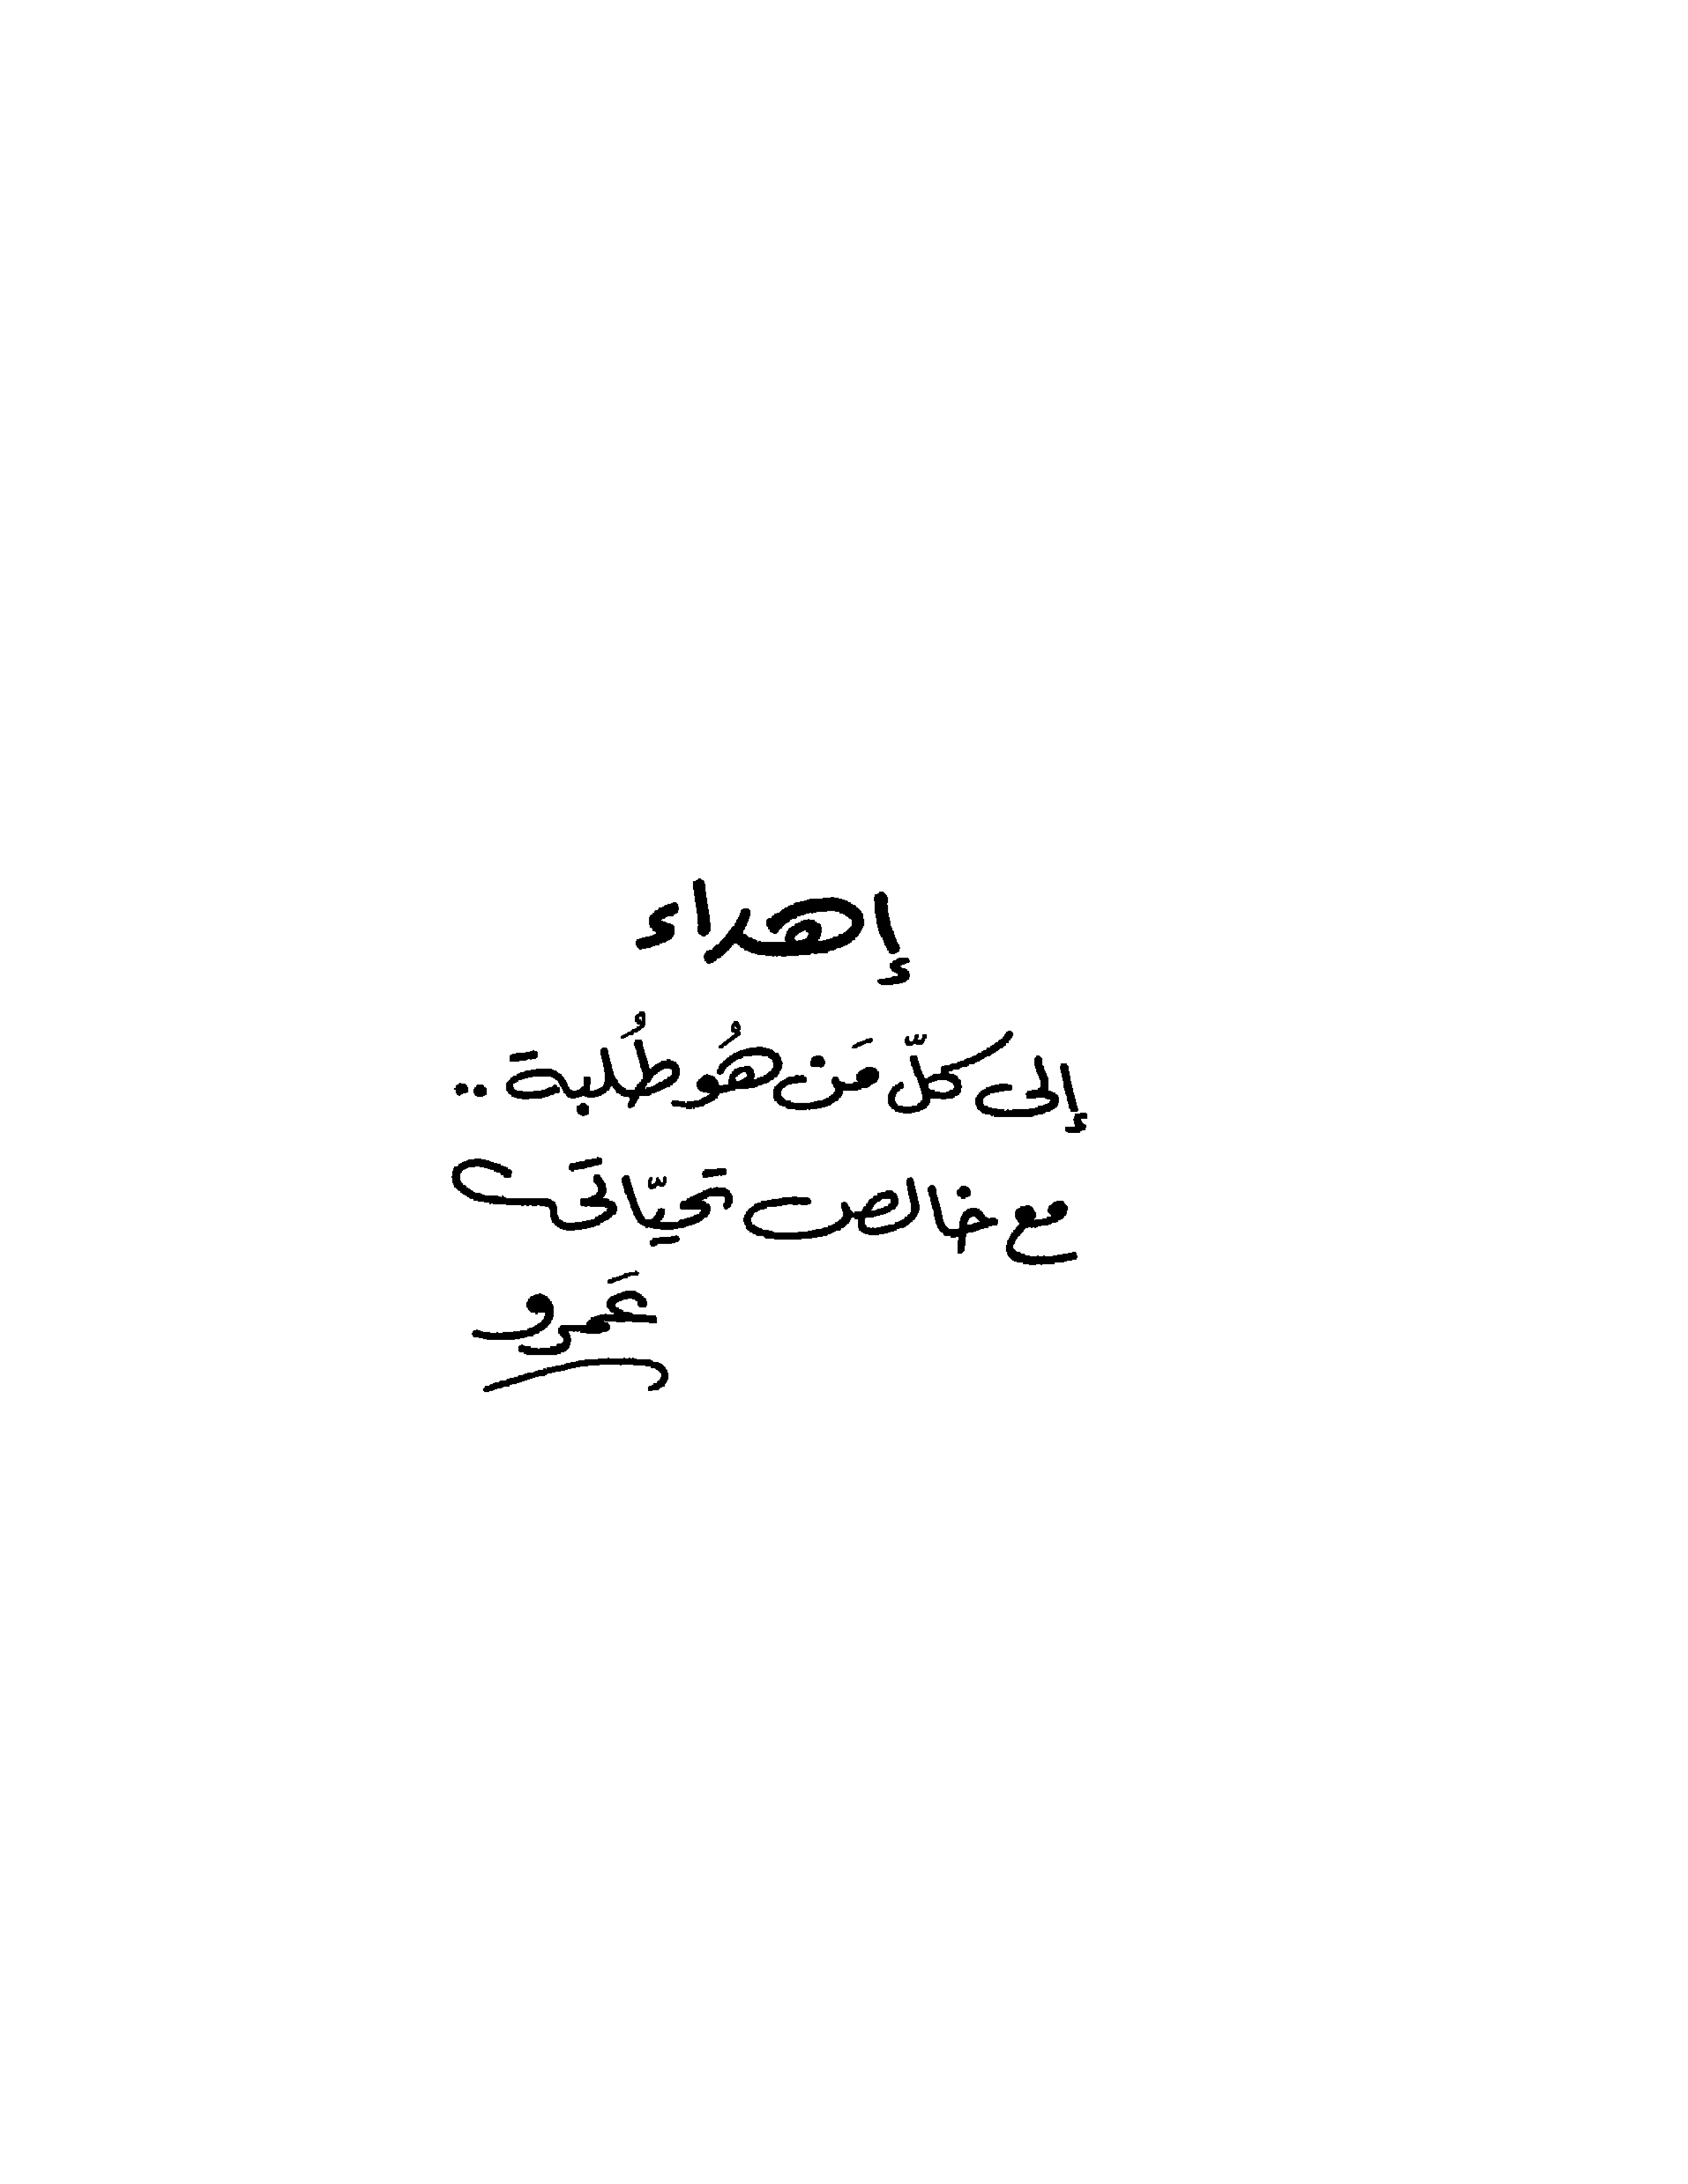 إهداء
إلى كلّ مَن هُو طُلبة ..
مع خالص تحيّاتي
عَمرو